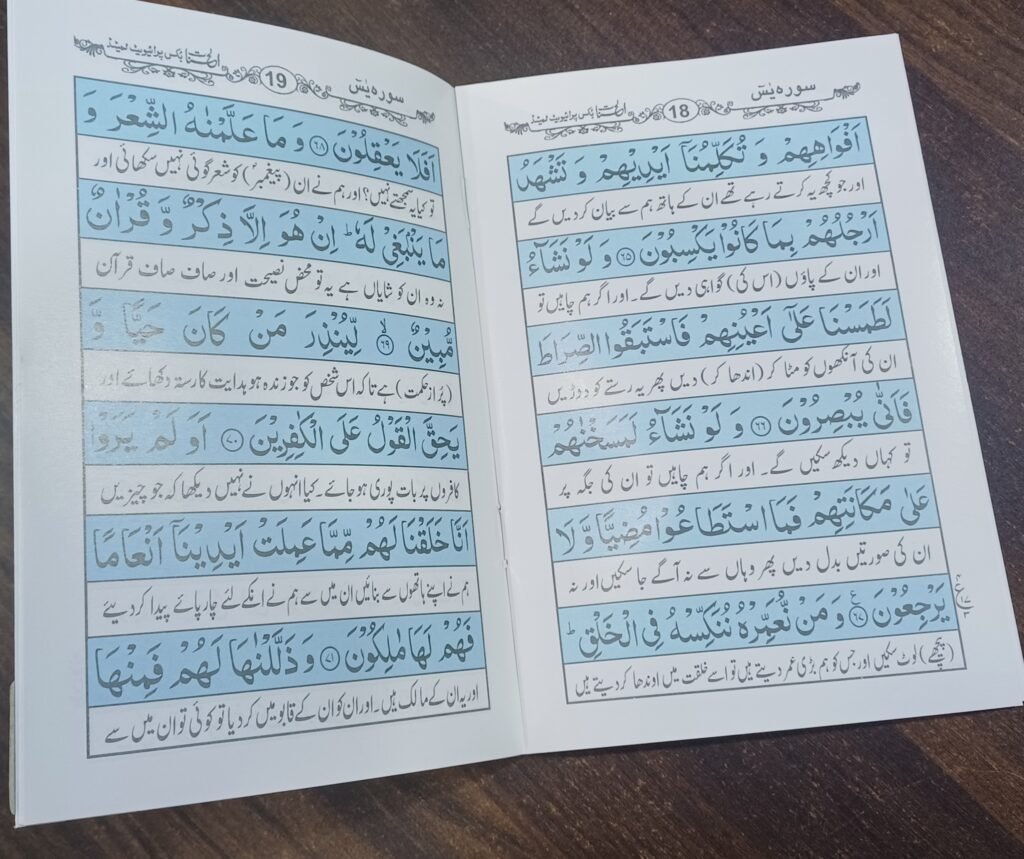 سورہ یٰسٓ
18
بکس پرائیویٹ لمیٹڈ
اَفْوَاهِهِمْ وَ تُكَلِّمُنَاۤ اَیْدِیْهِمْ وَ تَشْهَدُ
اور جو کچھ یہ کرتے رہے تھے ان کے ہاتھ ہم سے بیان کردیں گے
اَرْجُلُهُمْ بِمَا كَانُوْا یَكْسِبُوْنَ ﴿۶۵﴾ وَ لَوْ نَشَآءُ
اور ان کے پاؤں (اس کی) گواہی دیں گے۔ اور اگر ہم چاہیں تو
لَطَمَسْنَا عَلٰۤی اَعْیُنِهِمْ فَاسْتَبَقُوا الصِّرَاطَ
ان کی آنکھوں کو مٹا کر (اندھا کر) دیں پھر یہ رستے کو دوڑیں
فَاَنّٰی یُبْصِرُوْنَ ﴿۶۶﴾ وَ لَوْ نَشَآءُ لَمَسَخْنٰهُمْ
تو کہاں دیکھ سکیں گے۔ اور اگر ہم چاہیں تو ان کی جگہ پر
عَلٰی مَكَانَتِهِمْ فَمَا اسْتَطَاعُوْا مُضِیًّا وَّ لَا
ان کی صورتیں بدل دیں پھر وہاں سے نہ آگے جا سکیں اور نہ
یَرْجِعُوْنَ ﴿۶۷﴾ۧ وَ مَنْ نُّعَمِّرْهُ نُنَكِّسْهُ فِی الْخَلْقِ ؕ
(پیچھے) لوٹ سکیں اور جس کو ہم بڑی عمر دیتے ہیں تو اسے خلقت میں اوندھا کر دیتے ہیں
سورہ یٰسٓ
19
بکس پرائیویٹ لمیٹڈ
اَفَلَا یَعْقِلُوْنَ ﴿۶۸﴾ وَ مَا عَلَّمْنٰهُ الشِّعْرَ وَ
تو کیا یہ سمجھتے نہیں؟ اور ہم نے ان (پیغمبرؐ) کو شعر گوئی نہیں سکھائی اور
مَا یَنْۢبَغِیْ لَهٗ ؕ اِنْ هُوَ اِلَّا ذِكْرٌ وَّ قُرْاٰنٌ
نہ وہ ان کو شایاں ہے یہ تو محض نصیحت اور صاف صاف قرآن
مُّبِیْنٌ ﴿۶۹﴾ۙ لِّیُنْذِرَ مَنْ كَانَ حَیًّا وَّ
(پُر از حکمت) ہے تاکہ اس شخص کو جو زندہ ہو ہدایت کا رستہ دکھائے اور
یَحِقَّ الْقَوْلُ عَلَی الْكٰفِرِیْنَ ﴿۷۰﴾ اَوَ لَمْ یَرَوْا
کافروں پر بات پوری ہو جائے۔ کیا انہوں نے نہیں دیکھا کہ جو چیزیں
اَنَّا خَلَقْنَا لَهُمْ مِّمَّا عَمِلَتْ اَیْدِیْنَاۤ اَنْعَامًا
ہم نے اپنے ہاتھوں سے بنائیں ان میں سے ہم نے انکے لئے چارپائے پیدا کر دیئے
فَهُمْ لَهَا مٰلِكُوْنَ ﴿۷۱﴾ وَ ذَلَّلْنٰهَا لَهُمْ فَمِنْهَا
اور یہ ان کے مالک ہیں۔ اور ان کو ان کے قابو میں کر دیا تو کوئی تو ان میں سے